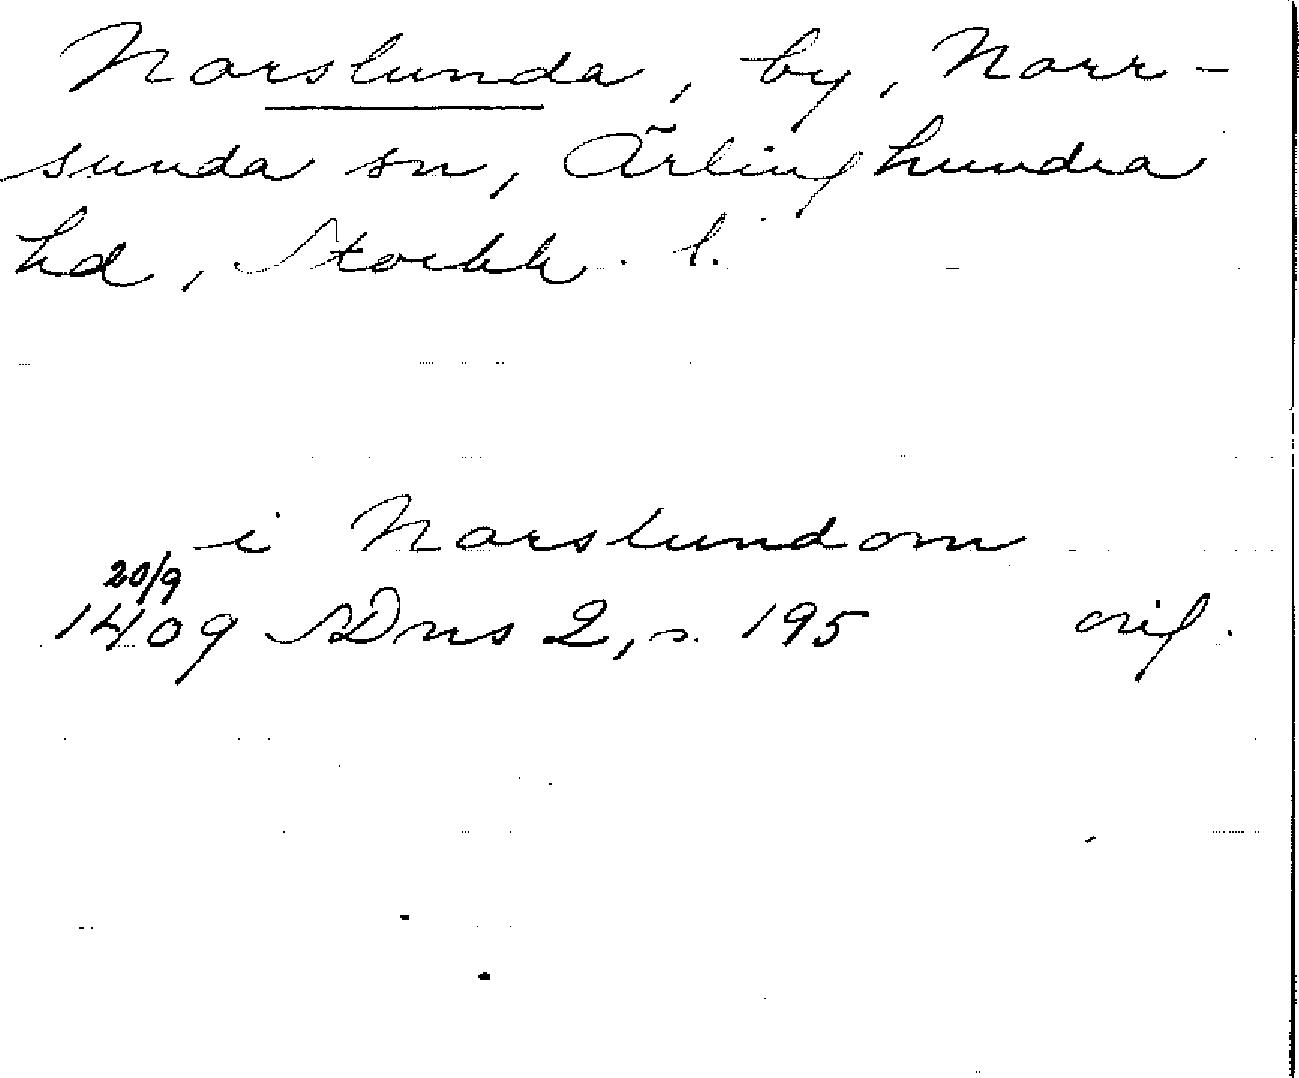 Narslunda, by, Norr-
sunda sn, Ärlinghundra
hd, Stockh. l.
i Narslundom
20/9
1409 SDns 2, s. 195 orig.